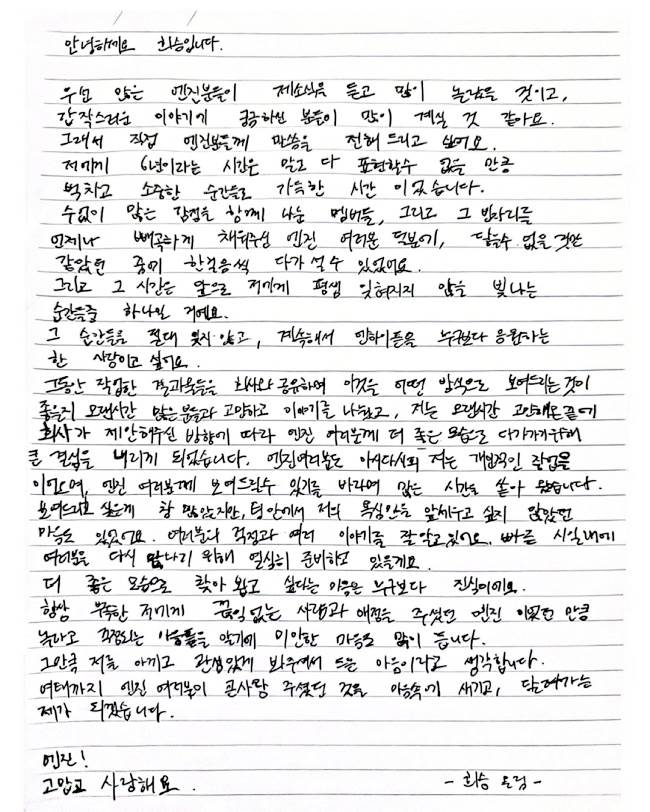 안녕하세요 희승입니다.
우선 많은 엔진분들이 제소식을 듣고 많이 놀랐을 것이고,
갑작스러운 이야기에 궁금하신 분들이 많이 계실 것 같아요.
그래서 직접 엔진분들께 말씀을 전해 드리고 싶어요.
저에게 6년이라는 시간은 말로 다 표현할수 없을 만큼
벅차고 소중한 순간들로 가득한 시간 이었습니다.
수없이 많은 감정을 함께 나눈 멤버들, 그리고 그 빈자리를
언제나 빼곡하게 채워주신 엔진 여러분 덕분에, 닿을수 없을 것만
같았던 꿈에 한걸음씩 다가 설 수 있었어요.
그리고 그 시간은 앞으로 저에게 평생 잊혀지지 않을 빛나는
순간들중 하나일 거에요.
그 순간들을 절대 잊지 않고, 계속해서 엔하이픈을 누구보다 응원하는
한 사람이고 싶어요.
그동안 작업한 결과물들을 회사와 공유하며 이것을 어떤 방식으로 보여드리는것이
좋을지 오랜시간 많은분들과 고민하고 이야기를 나눴고, 저는 오랜시간 고민해온 끝에
회사가 제안해주신 방향에 따라 엔진 여러분께 더 좋은 모습으로 다가가기위해
큰 결심을 내리게 되었습니다. 엔진여러분도 아시다시피 저는 개인적인 작업을
이어오며, 엔진 여러분께 보여드릴수 있기를 바라며 많은 시간을 쏟아 왔습니다.
보여드리고 싶은게 참 많았지만, 팀 안에서 저의 욕심만을 앞세우고 싶지 않았던
마음도 있었어요. 여러분의 걱정과 여러 이야기를 잘 알고있어요. 빠른 시일내에
여러분을 다시 만나기 위해 열심히 준비하고 있을게요.
더 좋은 모습으로 찾아 뵙고 싶다는 마음은 누구보다 진심이에요.
항상 부족한 저에게 끊임없는 사랑과 애정을 주셨던 엔진 이었던 만큼
놀라고 걱정되는 마음들을 알기에 미안한 마음도 많이 듭니다.
그만큼 저를 아끼고 관심있게 봐주셔서 드는 마음이라고 생각합니다.
여태까지 엔진 여러분이 큰사랑 주셨던 것을 마음속에 새기고, 달려가는
제가 되겠습니다.
엔진!
고맙고 사랑해요.
- 희승 올림 -